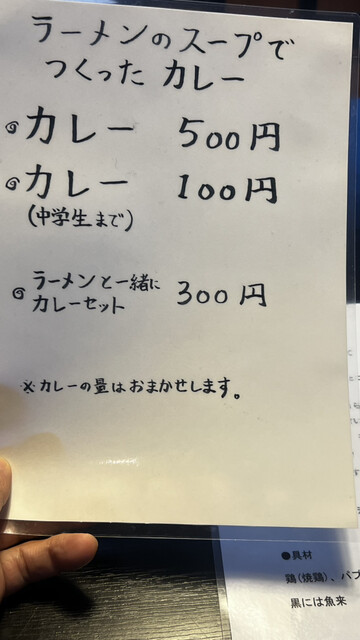 ラーメンのスープで
つくった カレー
カレー 500円
カレー 100円
(中学生まで)
ラーメンと一緒に
カレーセット 300円
※カレーの量はおまかせします。
●具材
鶏(焼鶏)、パプ
黒には魚来